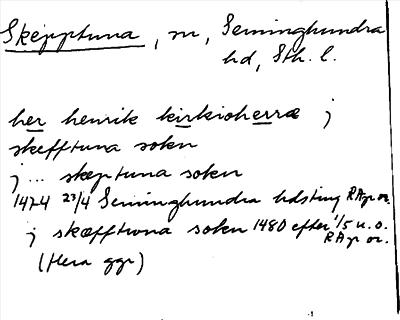 Skepptuna, sn, Seminghundra
hd, Sth. l.
her henrik kirkioherræ j
skefftuna sokn
j ... skeptuna sokn
1474 23/4 Seminghundra hdsting RAp or.
j skæfftwna sokn 1480 efter 1/5 u.o.
RAp or.
(Flera ggr)